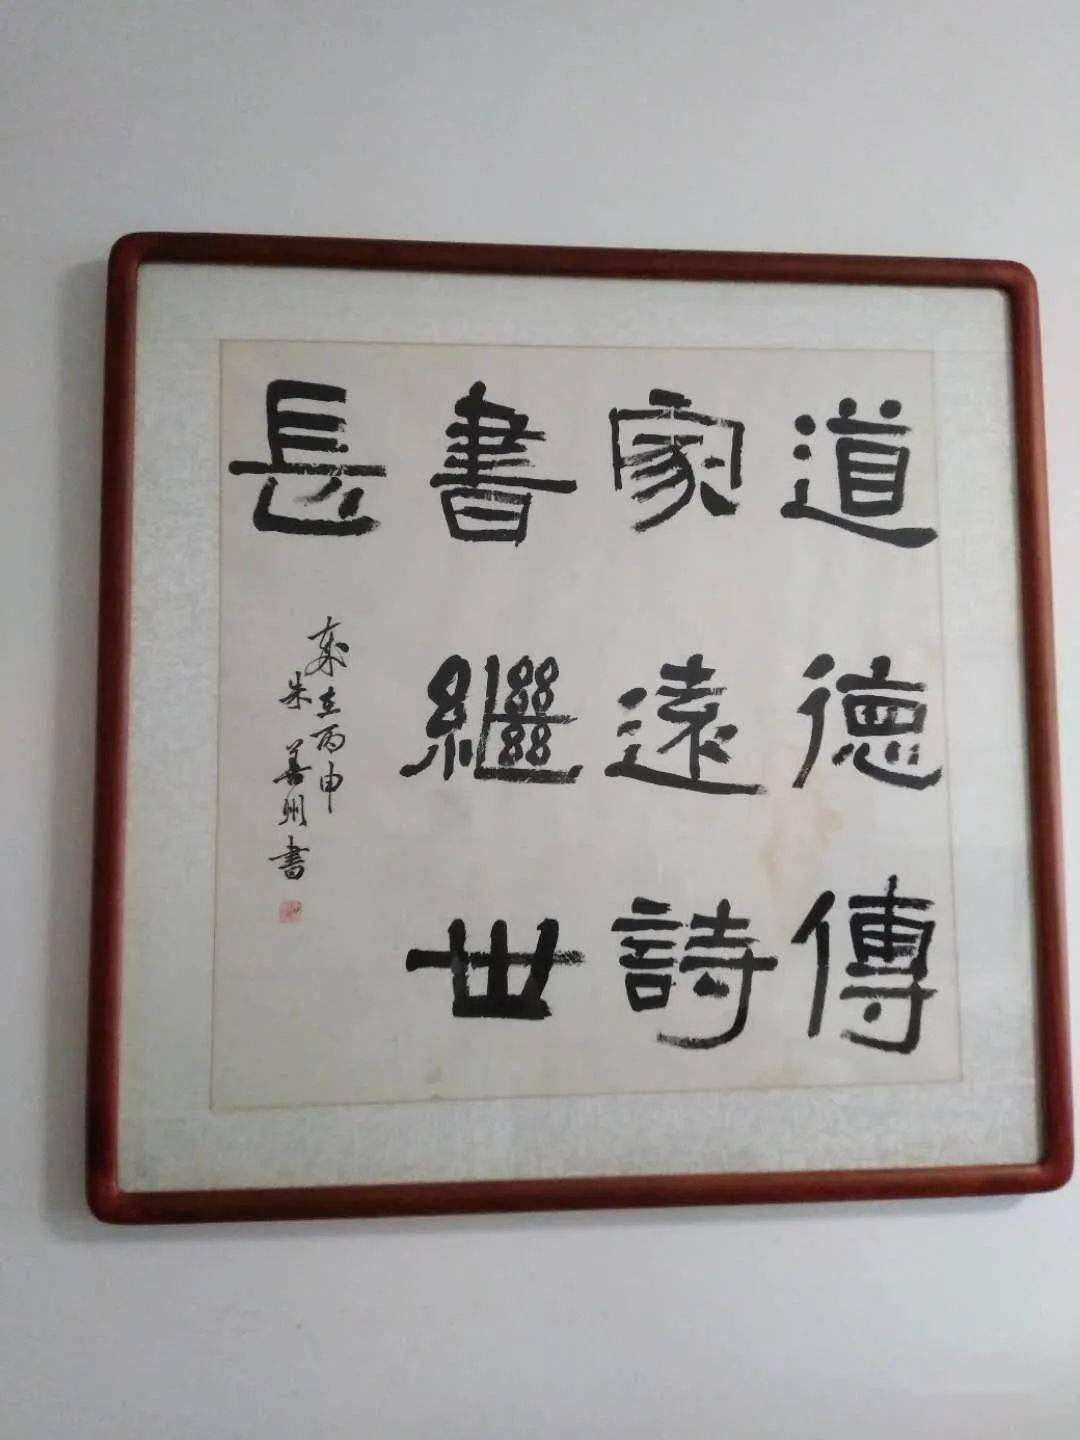 道德傳
家遠詩
書繼世
長
歲在丙申
朱善州書